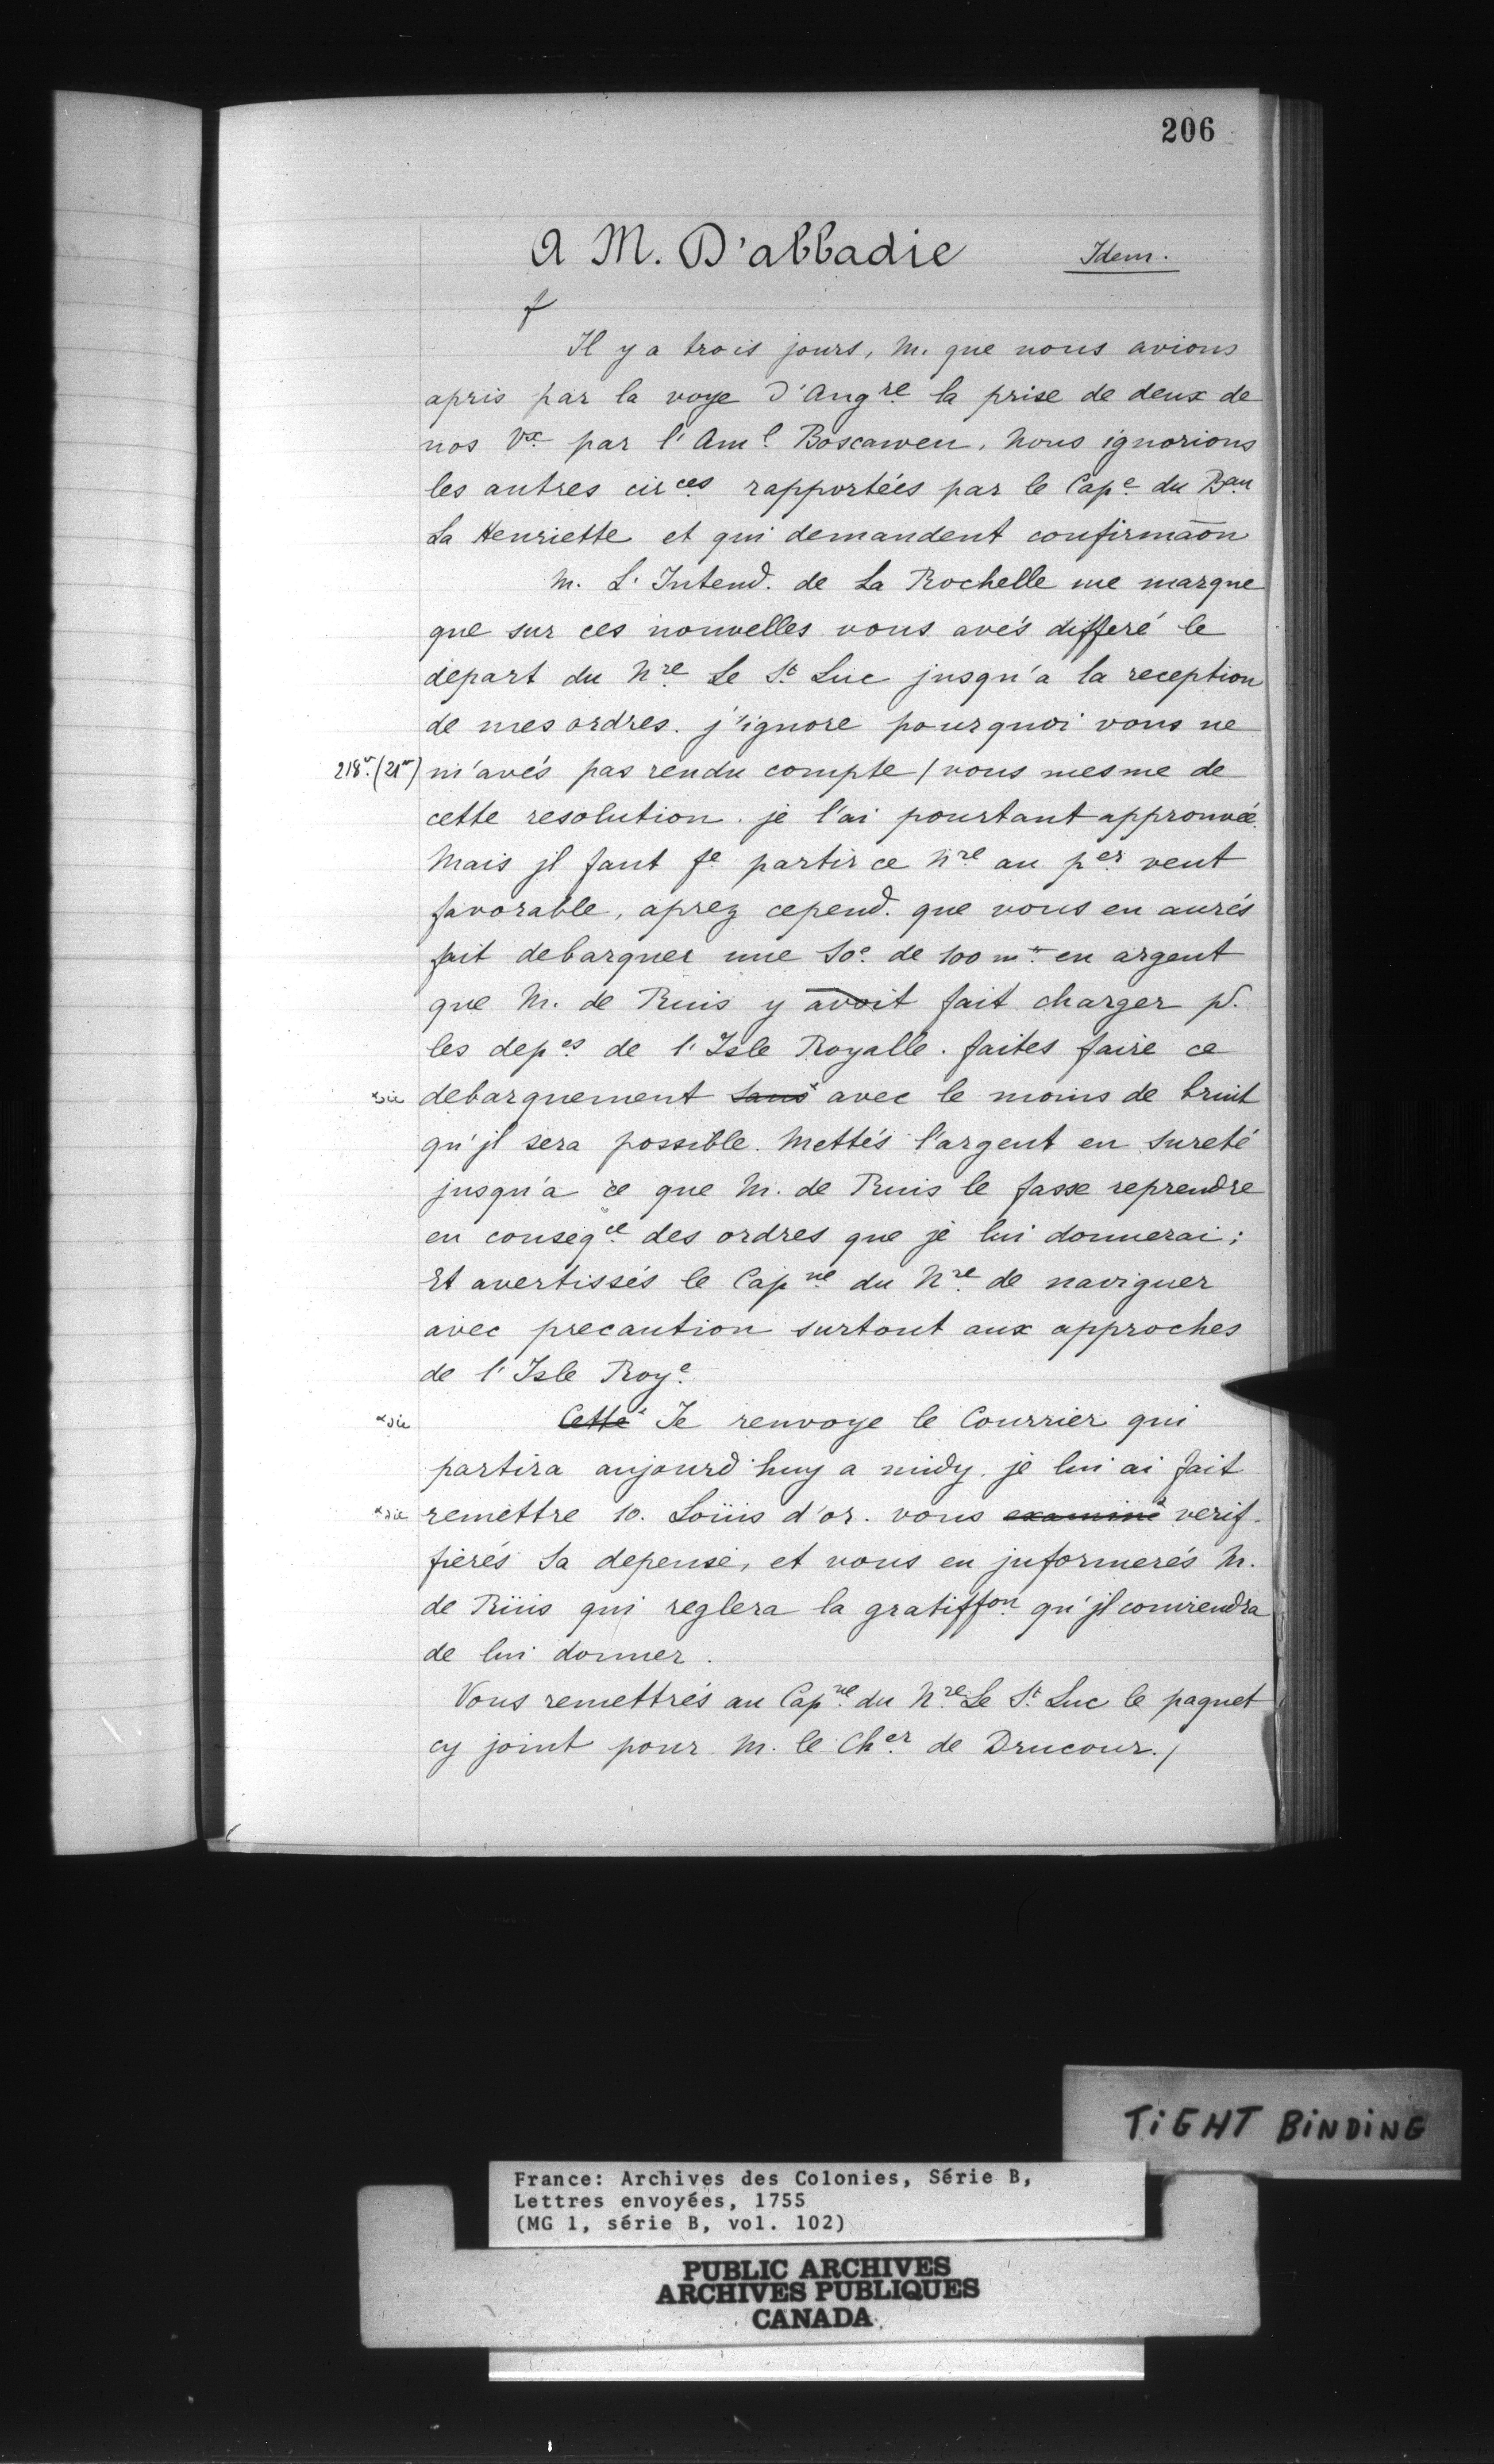 206
A M. D'abbadie Idem.
f
Il y a trois jours, M. que nous avions
apris par la voye D'Ang.re la prise de deux de
nos V.x par l'Am.l Boscawen. Nous ignorions
les autres cir.ces rapportées par le Cap.e du B.au
La Henriette et qui demandent confirmaōn
M. L'Intend. de La Rochelle me marque
que sur ces nouvelles vous avés differé le
depart du N.re Le S.t Luc jusqu'a la reception
de mes ordres. j'ignore pourquoi vous ne
218.v (21v) m'avés pas rendu compte / vous mesme de
cette resolution. je l'ai pourtant approuvée.
Mais jl faut f.e partir ce N.re au p.er vent
favorable, aprez cepend. que vous en aurés
fait debarquer une So.e de 100 m.tt en argent
que M. de Ruis y avoit fait charger p.
les dep.es de l'Isle Royalle. faites faire ce
x sic debarquement sans x avec le moins de bruit
qu'jl sera possible. Mettés l'argent en sureté
jusqu'a ce que M. de Ruis le fasse reprendre
en conseq.ce des ordres que je lui donnerai;
Et avertissés le Cap.ne du N.re de naviguer
avec precaution surtout aux approches
de l'Isle Roy.e
x sic Cette x Je renvoye le Courrier qui
partira aujourd'huy a midy. je lui ai fait
x sic remettre 10. Loüis d'or. vous examiné x verif-
fierés sa depense, et vous en jnformerés M.
de Rüis qui reglera la gratiff.on qu'jl conviendra
de lui donner.
Vous remettrés au Cap.ne du N.re Le S.t Luc le paquet
cy joint pour M. le Ch.er de Drucour./
TiGHT BiNDiNG
France: Archives des Colonies, Série B,
Lettres envoyées, 1755
(MG 1, série B, vol. 102)
PUBLIC ARCHIVES
ARCHIVES PUBLIQUES
CANADA